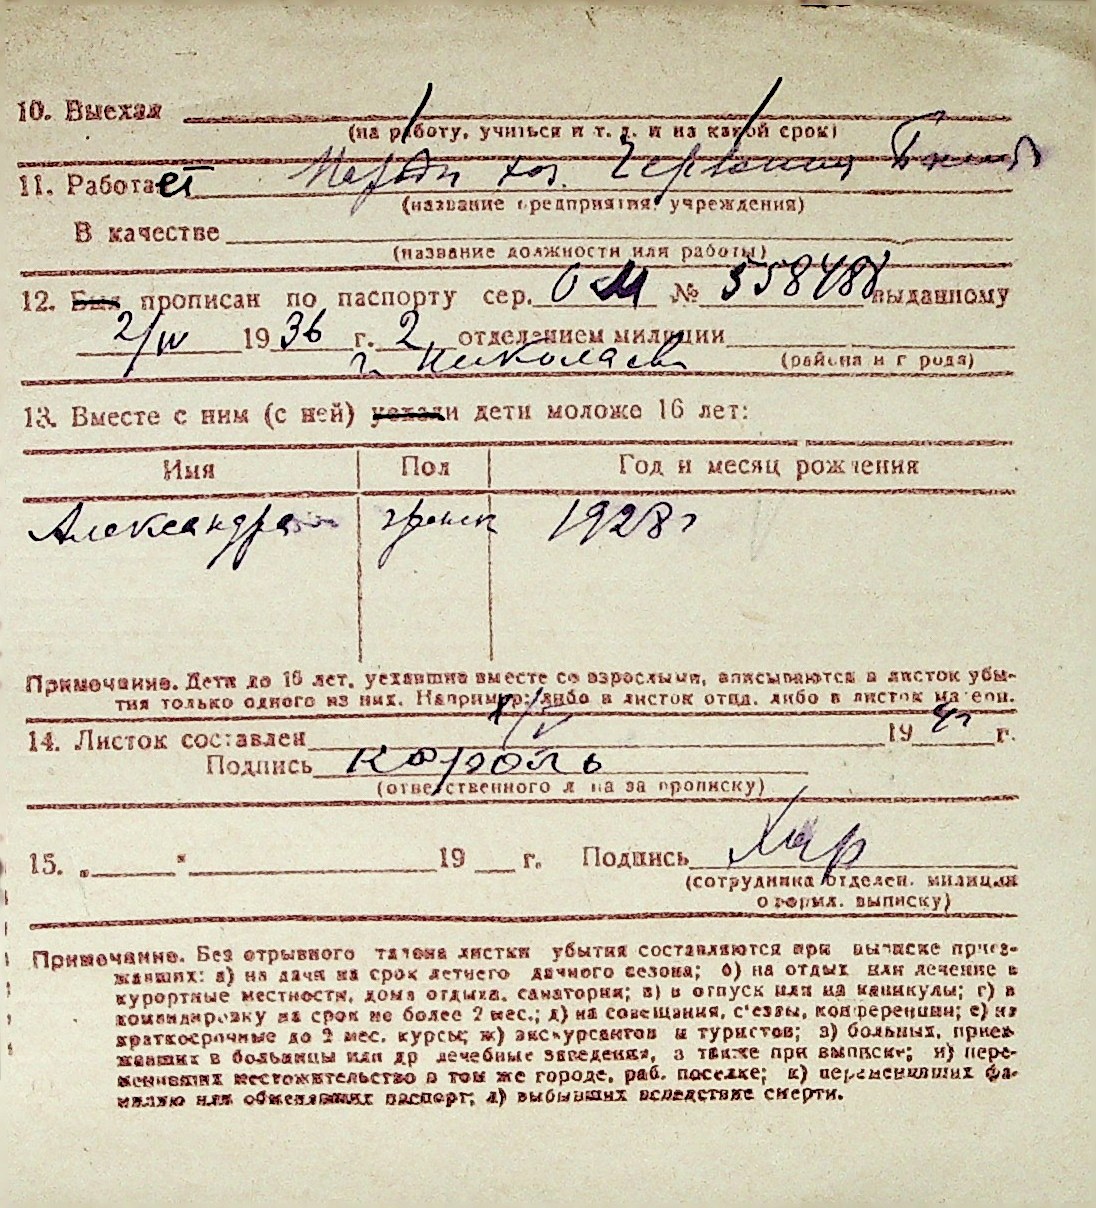 10. Выехал
(на работу, учиться и т. д. и на какой срок)
11. Работает
(название предприятия, учреждения)
В качестве
(название должности или работы)
12. Был прописан по паспорту сер. № 558488 выданному
2/IV 1936 г. 2 отделением милиции
г. Николаев (района и города)
13. Вместе с ним (с ней) уехали дети моложе 16 лет:
Имя Пол Год и месяц рождения
Александра женск 1928 г
Примечание. Дети до 16 лет, уехавшие вместе со взрослыми, вписываются в листок убы-
тия только одного из них. Например: либо в листок отца, либо в листок матери.
14. Листок составлен 19 г.
Подпись Король
(ответственного лица за прописку)
15. „ " 19 г. Подпись
(сотрудника отделен. милиции
оформл. выписку)
Примечание. Без отрывного талона листки убытия составляются при выписке приез-
жавших: а) на дачи на срок летнего дачного сезона; б) на отдых или лечение в
курортные местности, дома отдыха, санатории; в) в отпуск или на каникулы; г) в
командировку на срок не более 2 мес.; д) на совещания, с'езды, конференции; е) на
краткосрочные до 2 мес. курсы; ж) экскурсантов и туристов; з) больных, приез-
жавших в больницы или др лечебные заведения, а также при выписке; и) пере-
менивших местожительство в том же городе, раб. поселке; к) переменивших фа-
милию или обменявших паспорт; л) выбывших вследствие смерти.